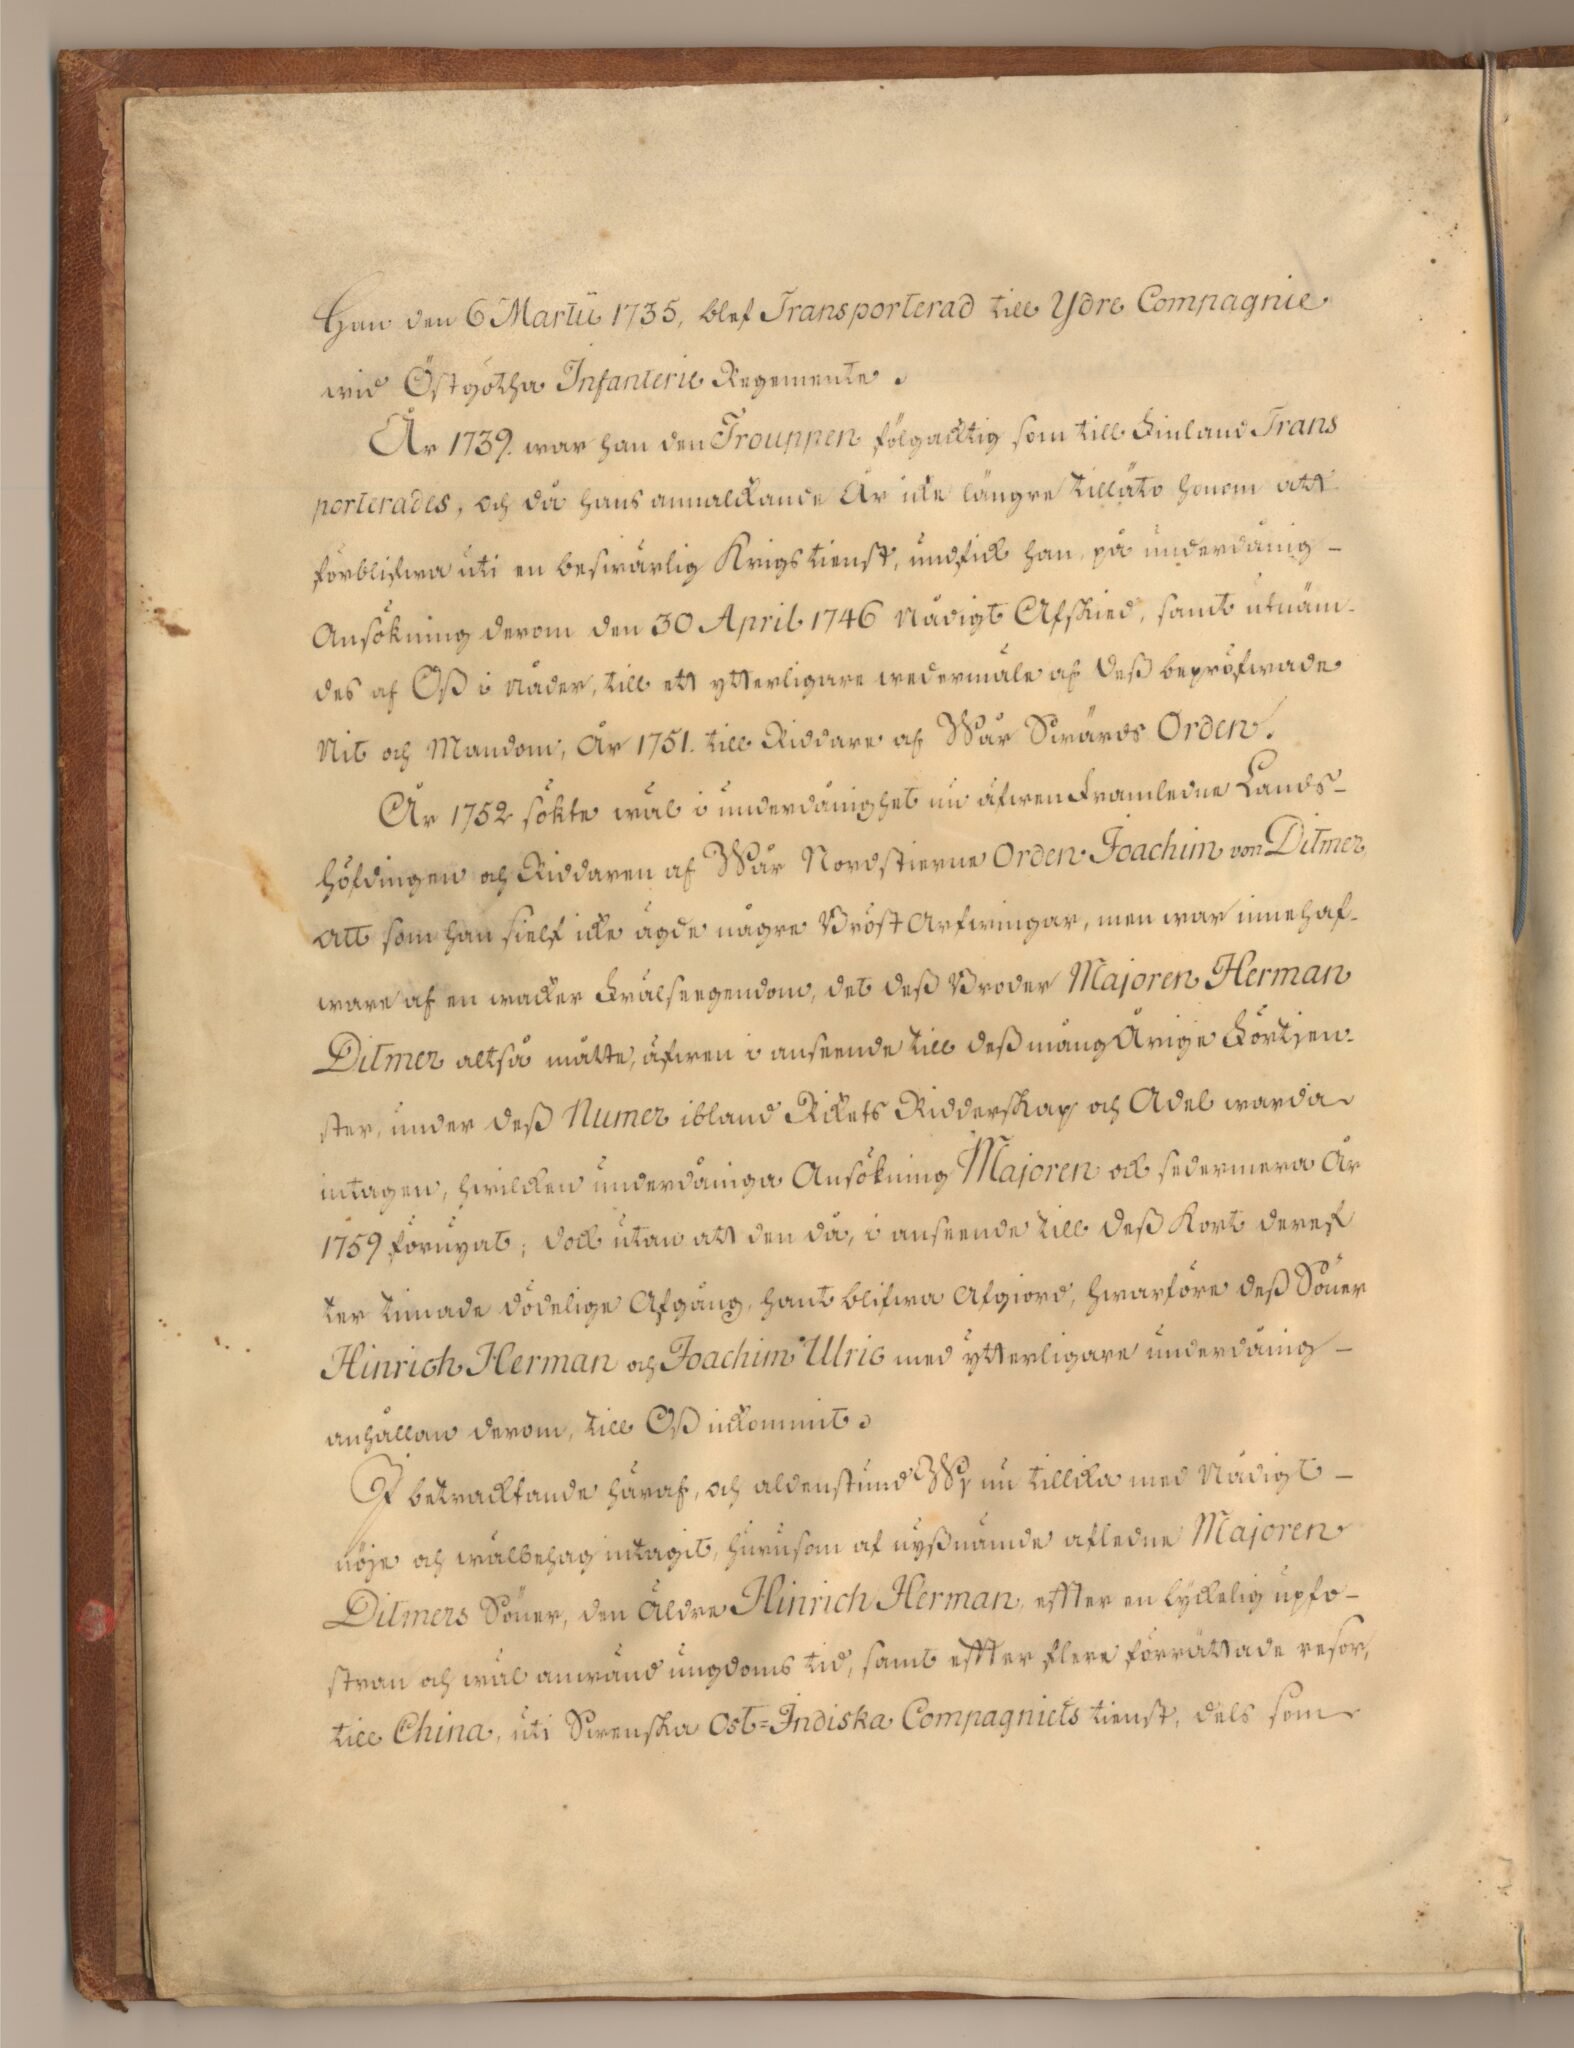 Han den 6 Martii 1735, blef Transporterad till Ydre Compagnie
wid Östgötha Infanterie Regemente.
År 1739. war han den Trouppen fölgacktig som till Finland Trans
porterades, och då hans annalckande År icke längre tilläto honom att
förblifwa uti en beswärlig Krigstienst, undfick han, på underdånig -
Ansökning derom den 30 April 1746 Nådigt Afskied, samt utnäm-
des af Oß i Nåder, till ett ytterligare wedermäle af deß bepröfwade
Nit och Mandom, År 1751. till Riddare af Wår Swärds Orden.
År 1752 sökte wäl i underdånighet nu äfwen Framledne Lands-
höfdingen och Riddaren af Wår Nordstierne Orden Joachim von Ditmer,
att som han sielf icke ägde någre Bröst Arfwingar, men war innehaf-
ware af en wacker Frälseegendom, det deß Broder Majoren Herman
Ditmer altså måtte, äfwen i anseende till deß mång Årige Förtjen-
ster, under deß Numer ibland Rikets Ridderskap och Adel warda
intagen, hwilcken underdåniga Ansökning Majoren ock sedermera År
1759 förnyat; dock utan att den då, i anseende till deß kort deref
ter timade dödelige Afgång, hant blifwa Afgiord, hwarföre deß Söner
Hinrich Herman och Joachim Ulric med ytterligare underdånig -
anhållan derom, till Oß inkommit.
I betracktande häraf, och aldenstund Wy nu tillika med Nådigt -
nöje och wälbehag intagit, hurusom af nyßnämde afledne Majoren
Ditmers Söner, den Äldre Hinrich Herman, effter en lyckelig upfo-
stran och wäl anwänd ungdoms tid, samt effter flere förrättade resor,
till China, uti Swenska Ost=Indiska Compagniets tienst, dels som